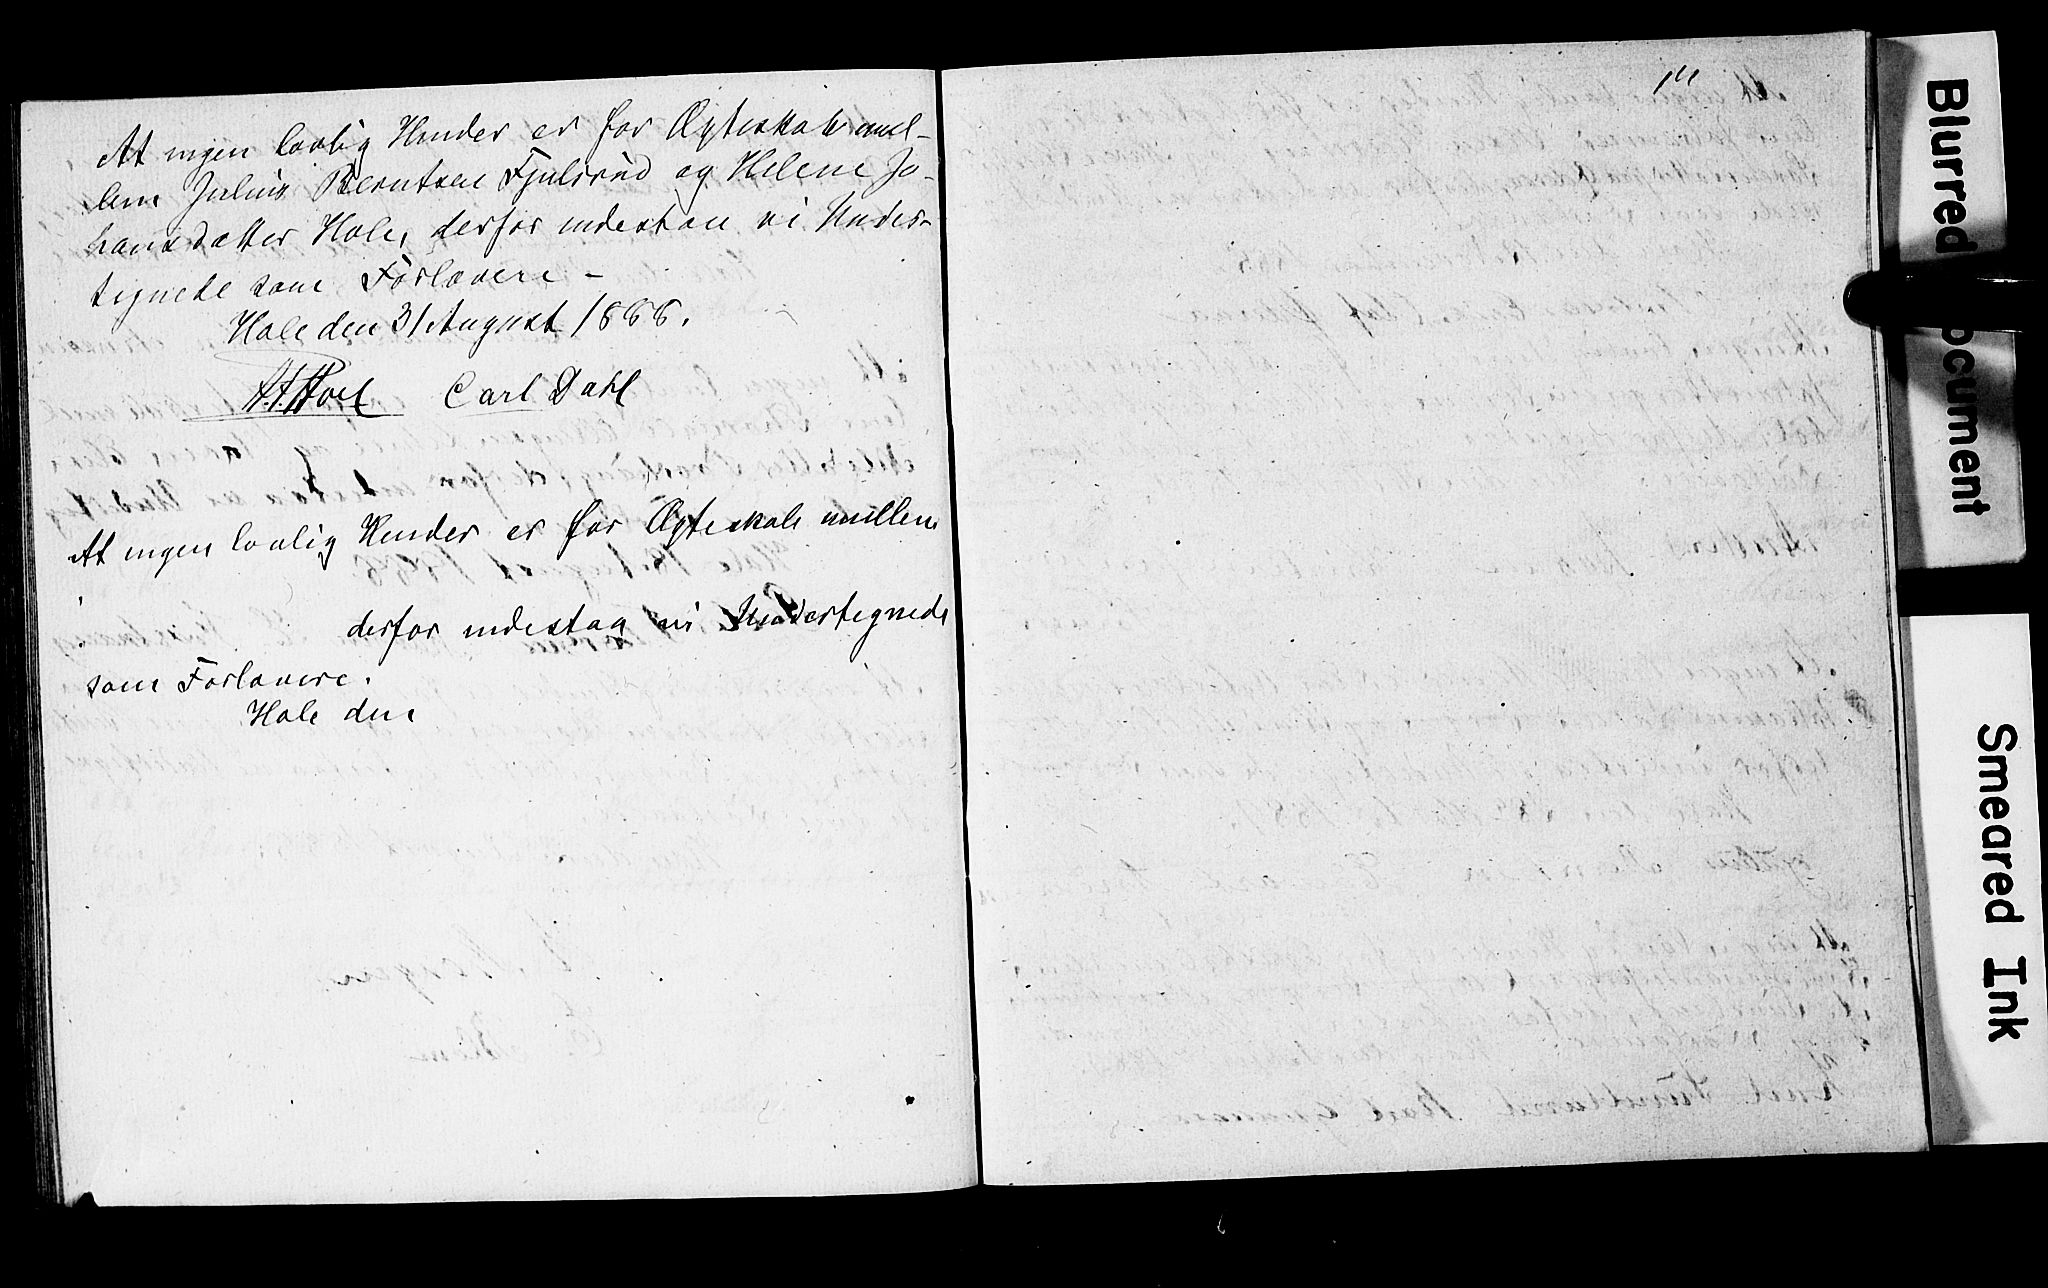 At ingen lovlig Hinder er for Ægteskab mel-
lem Julius Berntsen Fjulsrud og Helene Jo-
hansdatter Hole, derfor indestaa vi Under-
tegnede som Forlovere –
Hole den 31 August 1888.
Carl Dahl
At ingen lovlig Hinder er for Ægteskab mellem
derfor indestaa vi Undertegnede
som Forlovere.
Hole den
14
Blurred Document
Smeared Ink